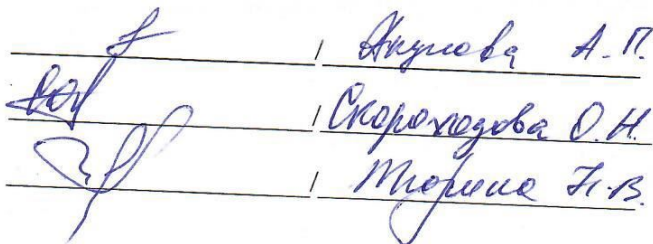 / Акулова А.П.
/ Скороходова О.Н.
/ Тюрина Н.В.